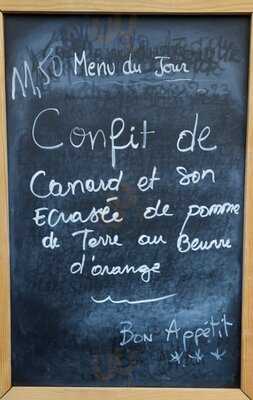 11,50 Menu du Jour
Confit de
Canard et son
Ecrasée de pomme
de Terre au Beurre
d'orange
Bon Appétit